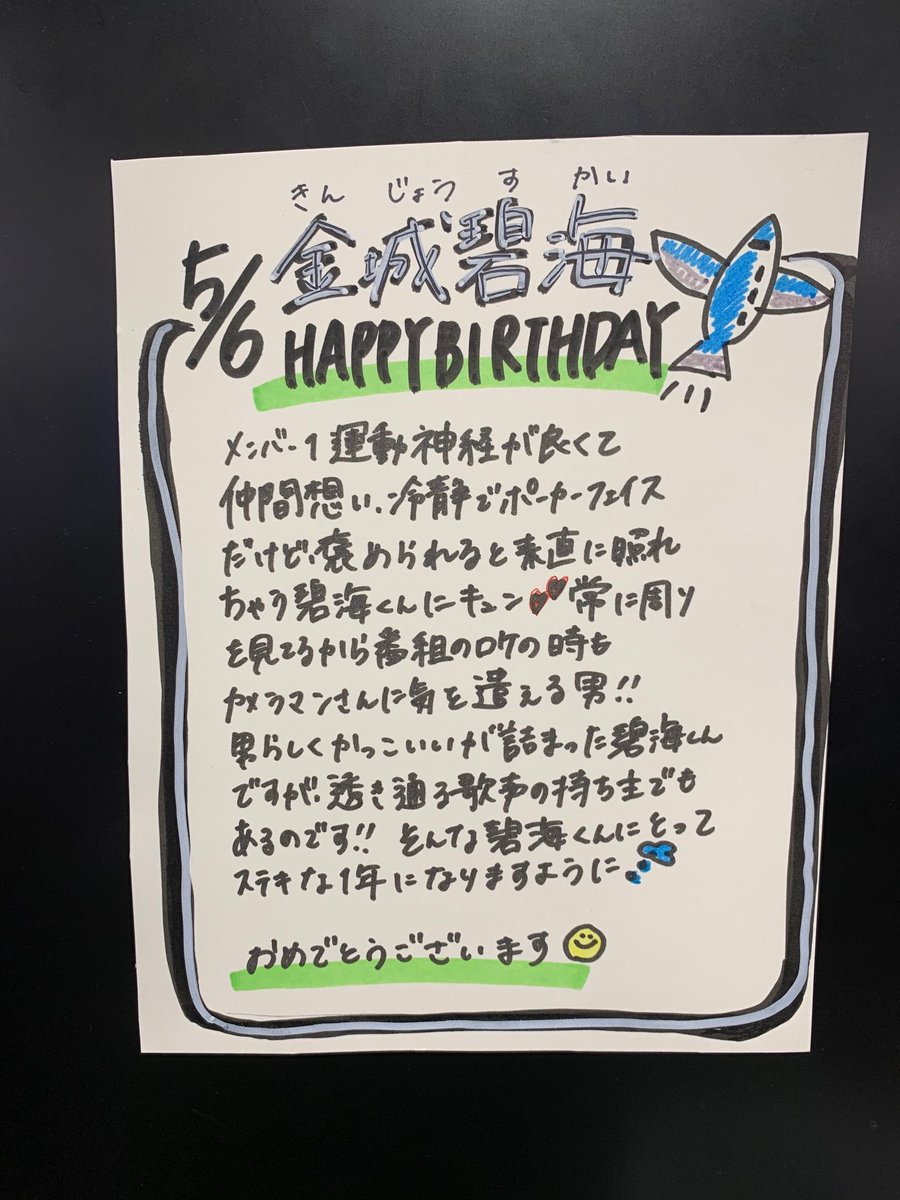 きん じょう す かい
5/6 金城碧海
HAPPY BIRTHDAY
メンバー1運動神経が良くて
仲間想い、冷静でポーカーフェイス
だけど、褒められると素直に照れ
ちゃう碧海くんにキュン 常に周り
を見てるから番組のロケの時も
カメラマンさんに気を遣える男!!
男らしくかっこいいが詰まった碧海くん
ですが、透き通る歌声の持ち主でも
あるのです!! そんな碧海くんにとって
ステキな1年になりますように
おめでとうございます